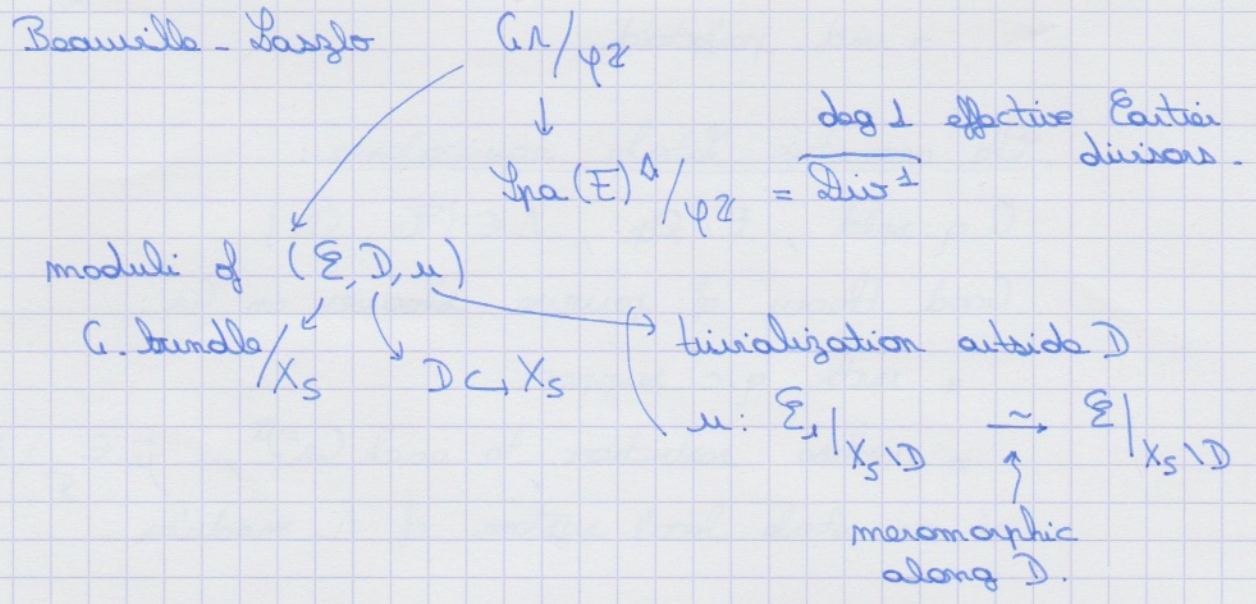 Beauville - Laszlo Gr/φ^ℤ
↓
deg 1 effective Cartier divisors.
Spa(E)^◇/φ^ℤ = Div^1
moduli of (ℰ, D, u)
G. bundle/X_S D ↪ X_S
trivialization outside D
u: ℰ_1|_{X_S \ D} ⥲ ℰ|_{X_S \ D}
↑
meromorphic
along D.